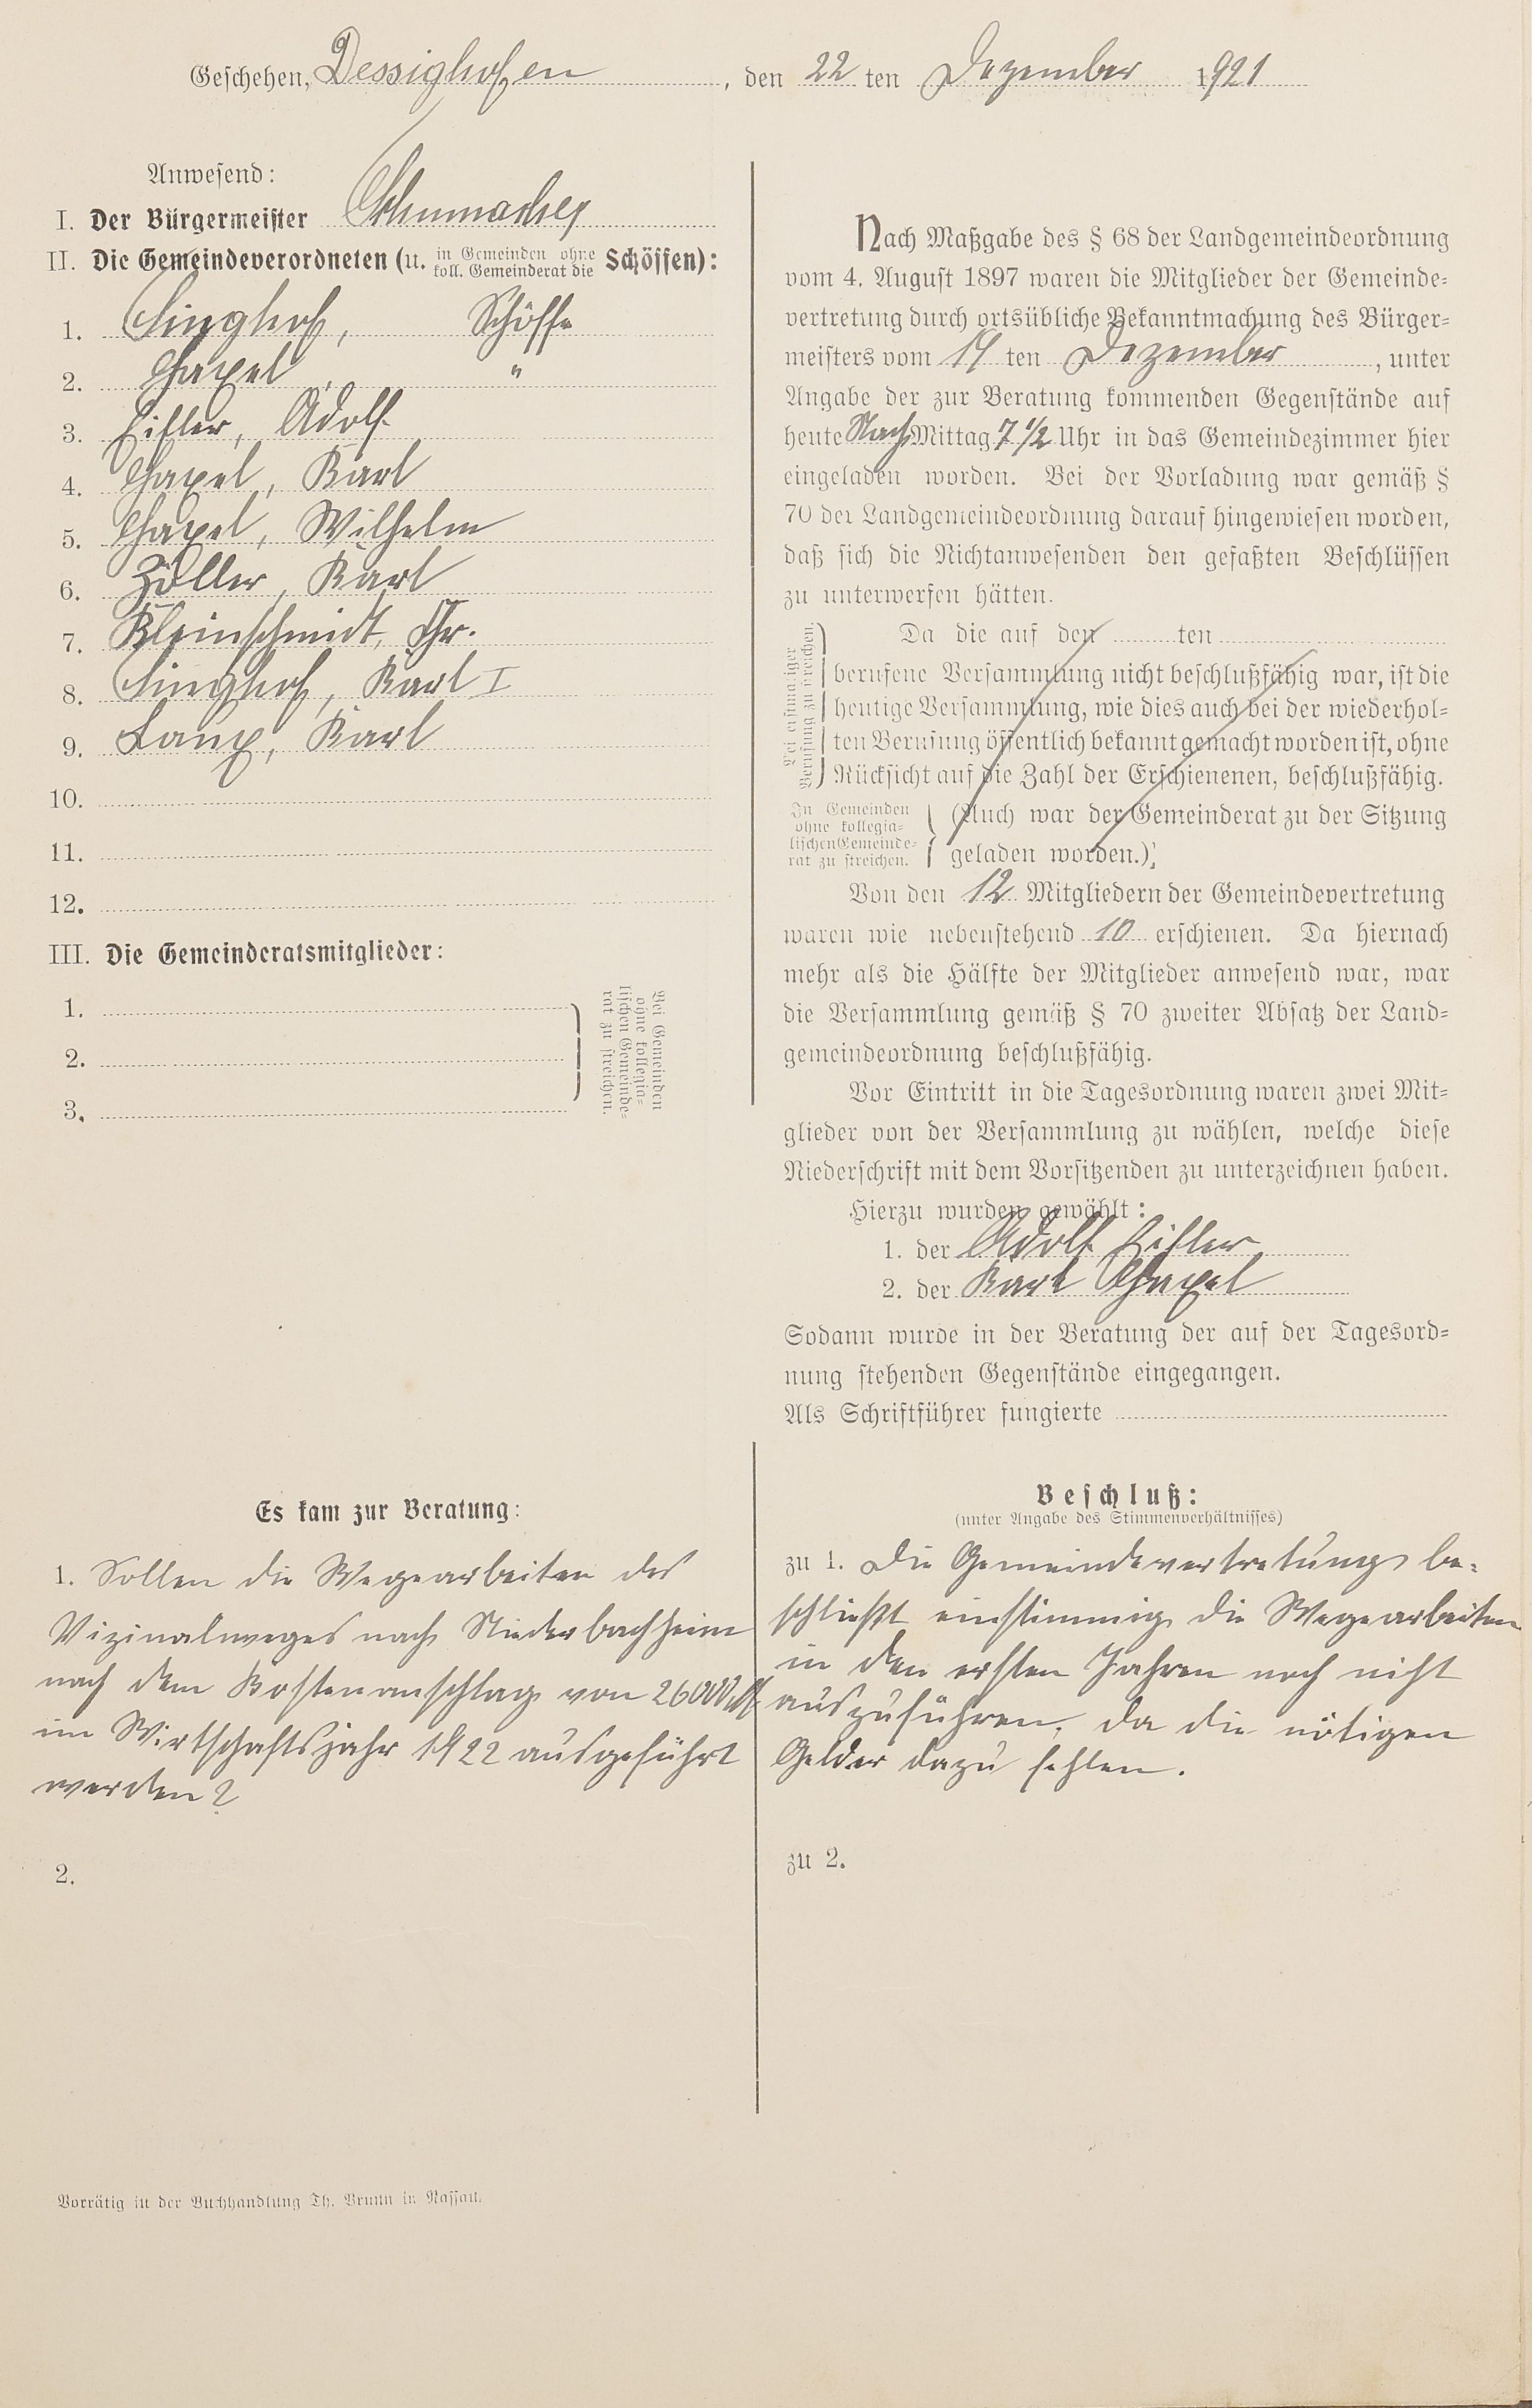 Geschehen, Dessighofen, den 22 ten Dezember 1921
Anwesend:
I. Der Bürgermeister Schumacher
II. Die Gemeindeverordneten (u. in Gemeinden ohne koll. Gemeinderat die Schöffen):
1. Singhof, Schöffe
2. Chapel, "
3. Hisler, Adolf
4. Chapel, Karl
5. Chapel, Wilhelm
6. Zöller, Karl
7. Kleinschmidt, Chr.
8. Singhof, Karl I
9. Laux, Karl
10.
11.
12.
III. Die Gemeinderatsmitglieder:
1.
2.
3.
Bei Gemeinden
ohne kollegia-
lischen Gemeinde-
rat zu streichen.
Nach Maßgabe des § 68 der Landgemeindeordnung
vom 4. August 1897 waren die Mitglieder der Gemeinde-
vertretung durch ortsübliche Bekanntmachung des Bürger-
meisters vom 19 ten Dezember, unter
Angabe der zur Beratung kommenden Gegenstände auf
heute Nach Mittag 7 1/2 Uhr in das Gemeindezimmer hier
eingeladen worden. Bei der Vorladung war gemäß §
70 der Landgemeindeordnung darauf hingewiesen worden,
daß sich die Nichtanwesenden den gefaßten Beschlüssen
zu unterwerfen hätten.
Bei erstmaliger
Berufung zu streichen.
Da die auf den ten
berufene Versammlung nicht beschlußfähig war, ist die
heutige Versammlung, wie dies auch bei der wiederhol-
ten Berufung öffentlich bekannt gemacht worden ist, ohne
Rücksicht auf die Zahl der Erschienenen, beschlußfähig.
In Gemeinden
ohne kollegia-
lischen Gemeinde-
rat zu streichen.
(Auch war der Gemeinderat zu der Sitzung
geladen worden.)
Von den 12 Mitgliedern der Gemeindevertretung
waren wie nebenstehend 10 erschienen. Da hiernach
mehr als die Hälfte der Mitglieder anwesend war, war
die Versammlung gemäß § 70 zweiter Absatz der Land-
gemeindeordnung beschlußfähig.
Vor Eintritt in die Tagesordnung waren zwei Mit-
glieder von der Versammlung zu wählen, welche diese
Niederschrift mit dem Vorsitzenden zu unterzeichnen haben.
Hierzu wurden gewählt:
1. der Adolf Hisler
2. der Karl Chapel
Sodann wurde in der Beratung der auf der Tagesord-
nung stehenden Gegenstände eingegangen.
Als Schriftführer fungierte
Es kam zur Beratung:
1. Sollen die Wegearbeiten des
Vizinalweges nach Niederbachheim
nach dem Kostenanschlag von 26000 M
im Wirtschaftsjahr 1922 ausgeführt
werden?
2.
Beschluß:
(unter Angabe des Stimmenverhältnisses)
zu 1. Die Gemeindevertretung be-
schließt einstimmig die Wegearbeiten
in den ersten Jahren noch nicht
auszuführen, da die nötigen
Gelder dazu fehlen.
zu 2.
Vorrätig in der Buchhandlung Th. Brunn in Nassau.